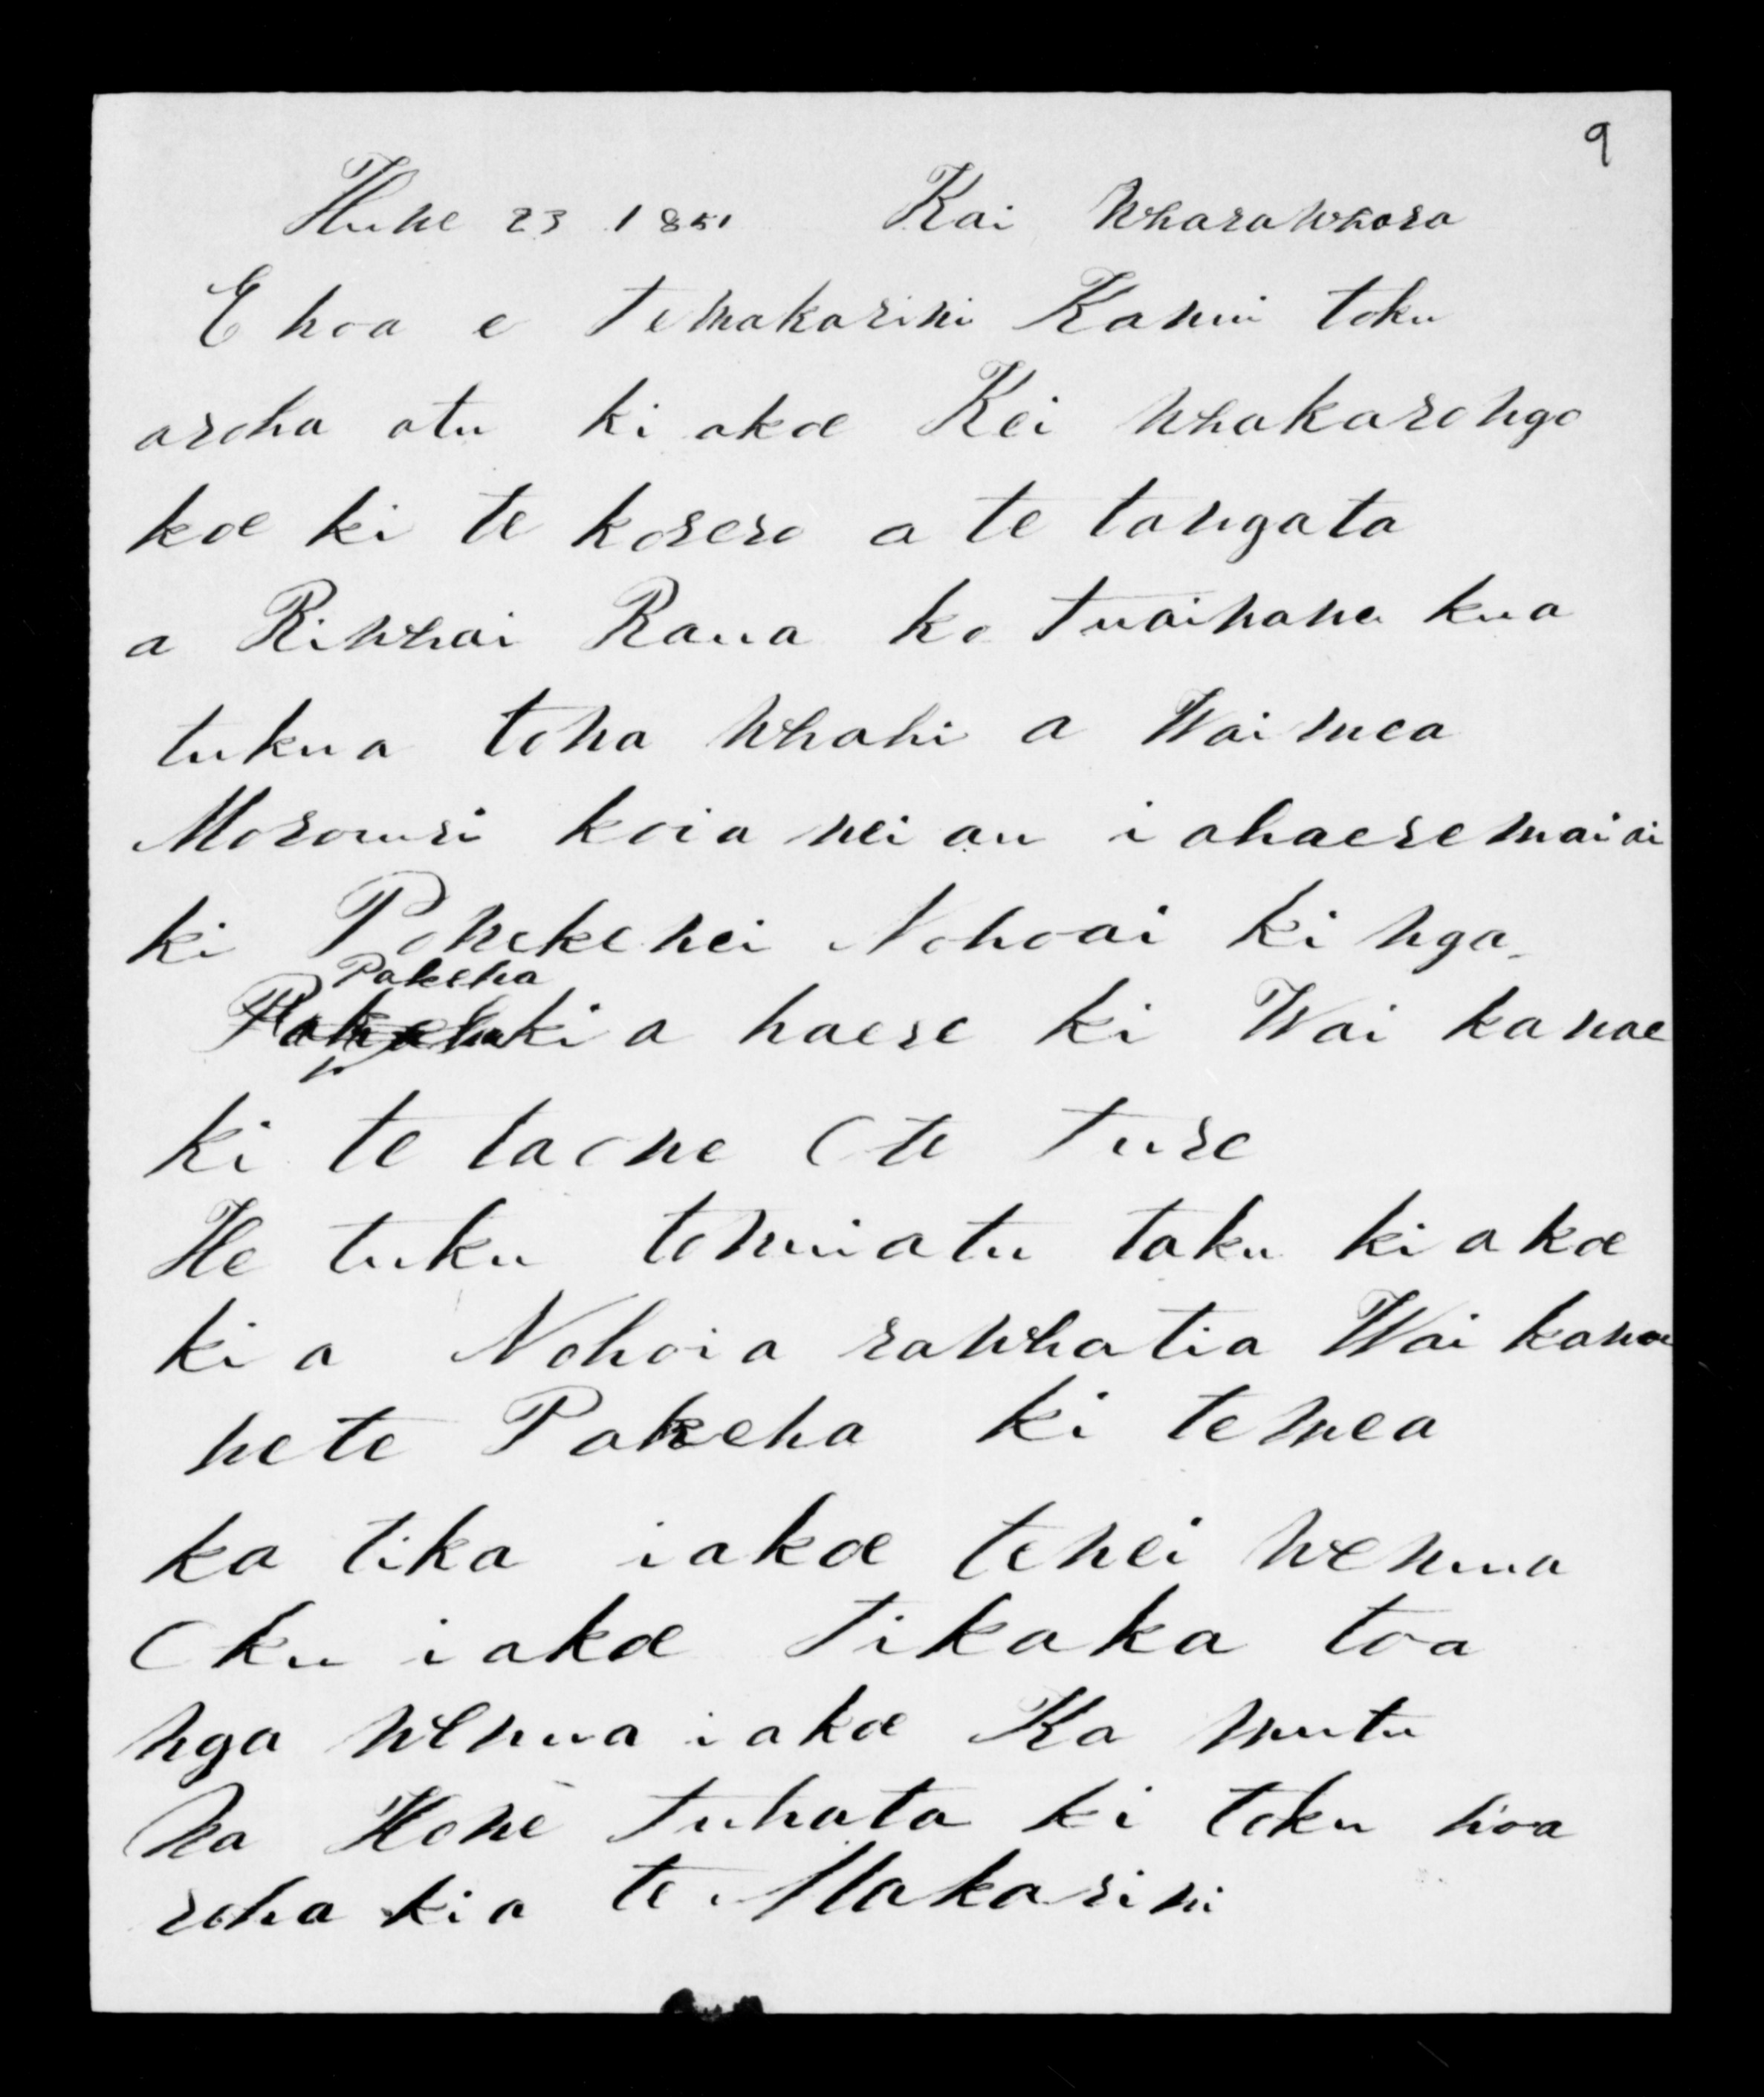 9
Hune 23 1851 Kai Wharawhara
E hoa e Temakarini Kanui toku
aroha atu ki akoe Kei whakarongo
koe ki te korero a te tangata
a Riwhai Raua ko Tuainane kua
tukua tona whahi a Waimea
Moroun­ri koia nei au i ahaere mai ai
ki Ponekenei Nohoai ki nga
Pakeha
kia haere ki Wai kanae
ki te taone O te Ture
He tuku tonuiatu taku ki akoe
ki a Nohoia rawhatia Wai kanae
nete Pakeha ki temea
ka tika iakoe tenei wenua
Oku iakoe Tikaka toa
nga wenua iakoe Ka mutu
Na Hone Tuhata ki toku hoa
roha kia te Makarini